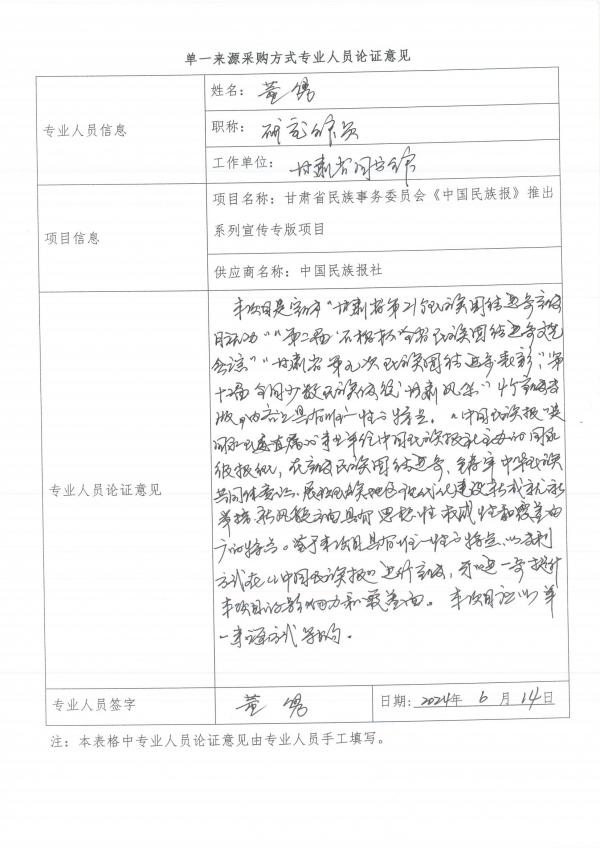 单一来源采购方式专业人员论证意见
专业人员信息
姓名：董
职称：研究馆员
工作单位：甘肃省
项目信息
项目名称：甘肃省民族事务委员会《中国民族报》推出
系列宣传专版项目
供应商名称：中国民族报社
专业人员论证意见
本项目是宣传“甘肃省第21个民族团结进步宣传
月活动”“第二届 全省民族团结进步
会议”“甘肃省第九次民族团结进步表彰”，“第
十二届全国少数民族传统 甘肃风采”4个宣传专
版，内容上具有唯一性的特点。《中国民族报》是
国家民委直属的事业单位中国民族报社主办的国家
级报纸，在宣传民族团结进步，铸牢中华民族
共同体意识，展现民族地区现代化建设新成就新
举措新风貌方面具有思想性权威性和覆盖面
广的特点。鉴于本项目具有唯一性的特点，以专刊
方式在《中国民族报》进行宣传，可以进一步提升
本项目的影响力和覆盖面。本项目适以单
一来源方式采购。
专业人员签字
董
日期：2024年 6 月 14日
注：本表格中专业人员论证意见由专业人员手工填写。